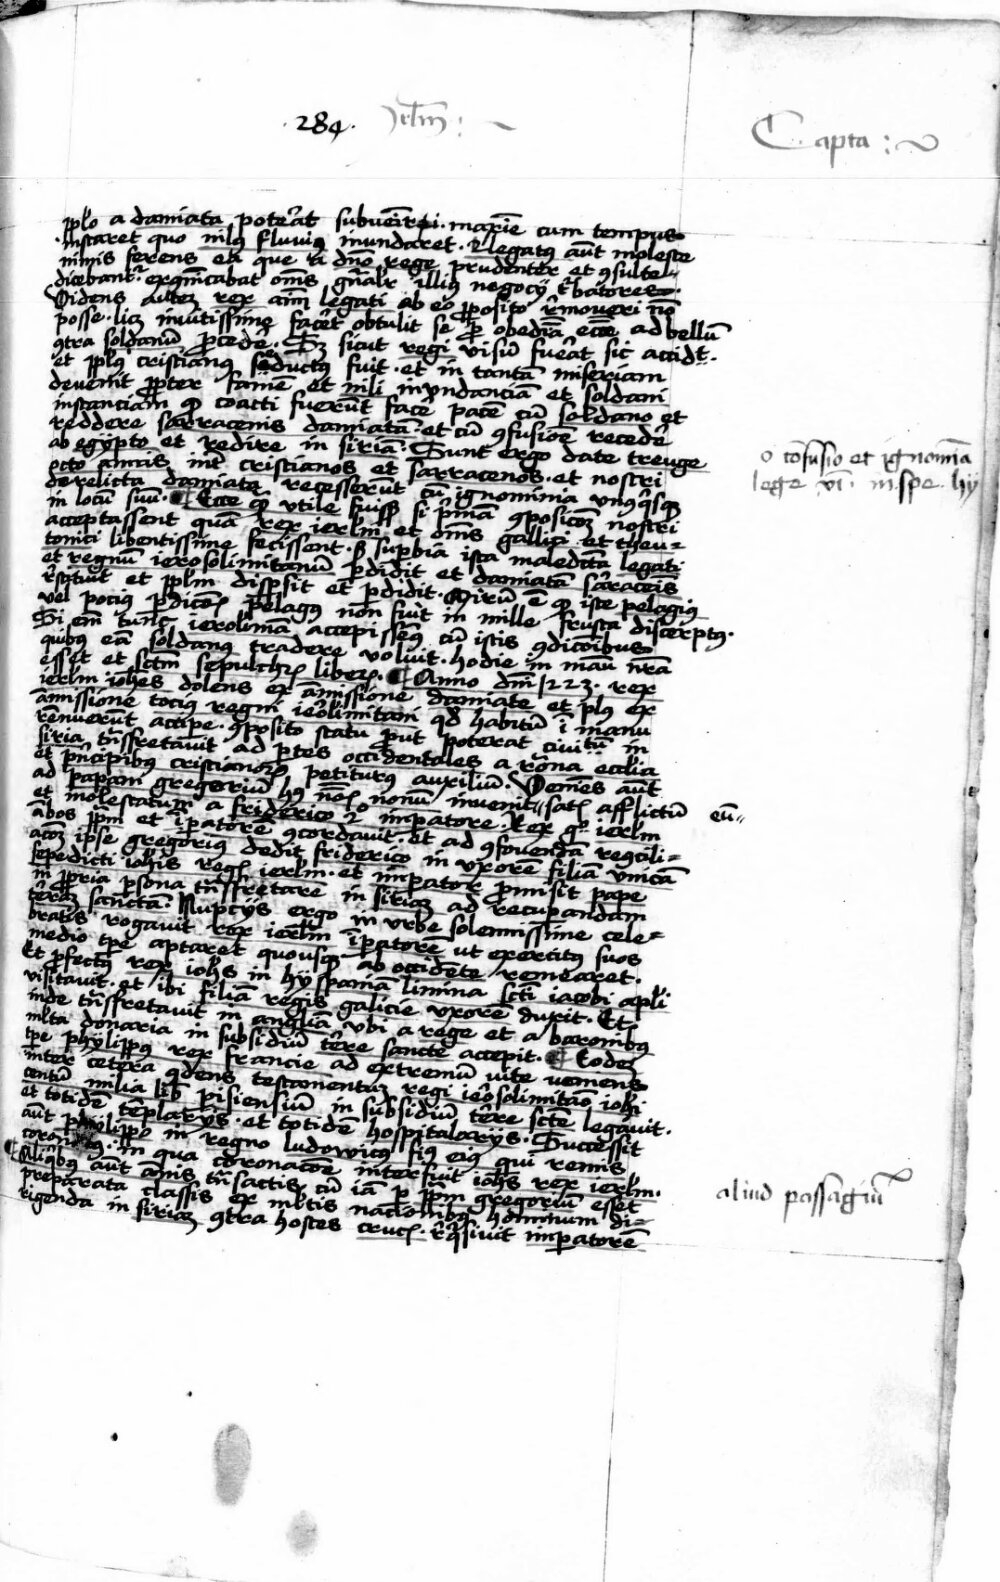 .284. Jrlm̄ :~
Capta : ~
pp̄lo a damiata poterat subuenīri. maxīe cum tempus
.instaret quo nilus fluviꝰ inundaret. legatꝰ aūt moleste
nimis ferens ea que a dn̄o rege prudenter et ꝯsulte
dicebant᷑. exꝯīcabat om̄s gn̄alr̄ illiꝰ negocÿ
Videns autem rex aīm legati ab eo ꝓposito rēmoveri nō
posse. licꝫ invitissime facēt obtulit se ꝑ obediā ecc̄e ad bellū
ꝯtra soldanū ꝓcede. Sꝫ sicut regi visū fuēat sic accidt.
et pp̄lꝰ cristianꝰ seductꝰ fuit. et in tantā miseriam
devenit ꝓpter famē et nili inūndanciā et soldani
instanciām ꝙ coacti fuerūt facē pacē cū soldano et
reddere sarracenis damiatā. et cū ꝯfusioē recedē
ab egÿpto et redire in siriā. Sunt ergo date treuge
octo annis int̄ cristianos et sarracenos. et nostri
derelicta damiata recesserūt cū ignominia vnꝰqͥsqꝫ
in locū suū. ¶ Ecce ꝙ utile fuissꝫ si pͥmā ꝯposicōꝫ nostri
acceptassent quā rex ierlm̄ et om̄s gallici et theu=
tonici libentissime fecissent. sꝫ supbia ista maledicta legati
et regnū ierosolimitanū ꝑdidit et damiatā sarracenis
restituit et pp̄lm disꝑsit et ꝑdidit. Mirū ē ꝙ iste pelagiꝰ
vel pociꝰ pelagus non fuit in mille frusta discerptꝰ.
Si em̄ tunc ierolimam accepissēꝰ cū istis ꝯdicōibus
quibus eā soldanꝰ tradere voluit. hodie in manu nr̄a
esset et sctm̄ sepulchꝝ liberꝫ. ¶ Anno dn̄i 1223. rex
ierlm̄ ioh̄es dolens ex āmissione damiate et plꝰ ex
āmissione tocius regni ierolimitani qd̄ habitū ī manu
rēnuerūt accipe. ꝯposito statu ꝓut poterat civitū in
siria trāsfretavit ad ꝑtes occidentales a rōna ecclīa
et pͥncipibꝰ cristianoꝝ petiturꝰ auxiliū. Veniēs aūt
ad papam gregoriū hꝰ nōīs nonū invenit satꝭ afflictū eū=
et molestatum a friderico 2º imꝑatore. Rex gͦ ierlm̄
ābos pp̄m et iꝑatorē ꝯcordavit et ad ꝯfovendā recōcili=
acōꝫ ipse gregoriꝰ dedit friderico in uxorē filiā vnicā
sepedicti ioh̄is regꝭ ierlm̄. et imꝑator ꝓmisit pape
in ꝓpria ꝑsona trāsfretare in siriaꝫ ad recupandam
terraꝫ sanctā. Nupcÿs ergo in vrbe solemnissime cele=
bratis rogavit rex ierlm̄ iꝑatorē ut exercitꝰ suos
medio tp̄e aptaret quousqꝫ ab occidēte remearet.
Et ꝓfectꝰ rex ioh̄s in hÿspaniā limina scti iacobi apl̄i
visitavit. et ibi filiā regis galicie vxorē duxit. Et
inde trāsfretavit in angliā vbi a rege et a baronibꝰ
ml̄ta donaria in subsidiū tere sancte accepit. ¶ Eodeꝫ
tp̄e phÿlippꝰ rex francie ad extremū vite veniens
inter cetera ꝯdens testamentum regi ierosolimitāo ioh̄i
centū milia lib̄ pisiensiū in subsidiū tere scte legavit.
et totidē tēplarÿs. et totidē hospitalarÿs. Successit
aūt phÿlippo in regno ludowicus fiꝰ eiꝰ qui remis
coronatꝰ. in qua coronacōe interfuit ioh̄es rex ierlm̄.
¶ Aliqͥbꝰ aūt ānis trāsactis cū iā ꝑ pp̄m gregoriū esset
preparata classis ex ml̄tis nacionibꝰ hominum di=
rigenda in siriaꝫ ꝯtra hostes crucꝭ. reqͥsivit imꝑatorē
o cōfusio et ignomīa
lege vī. in spe. hÿ
aliud passagiū